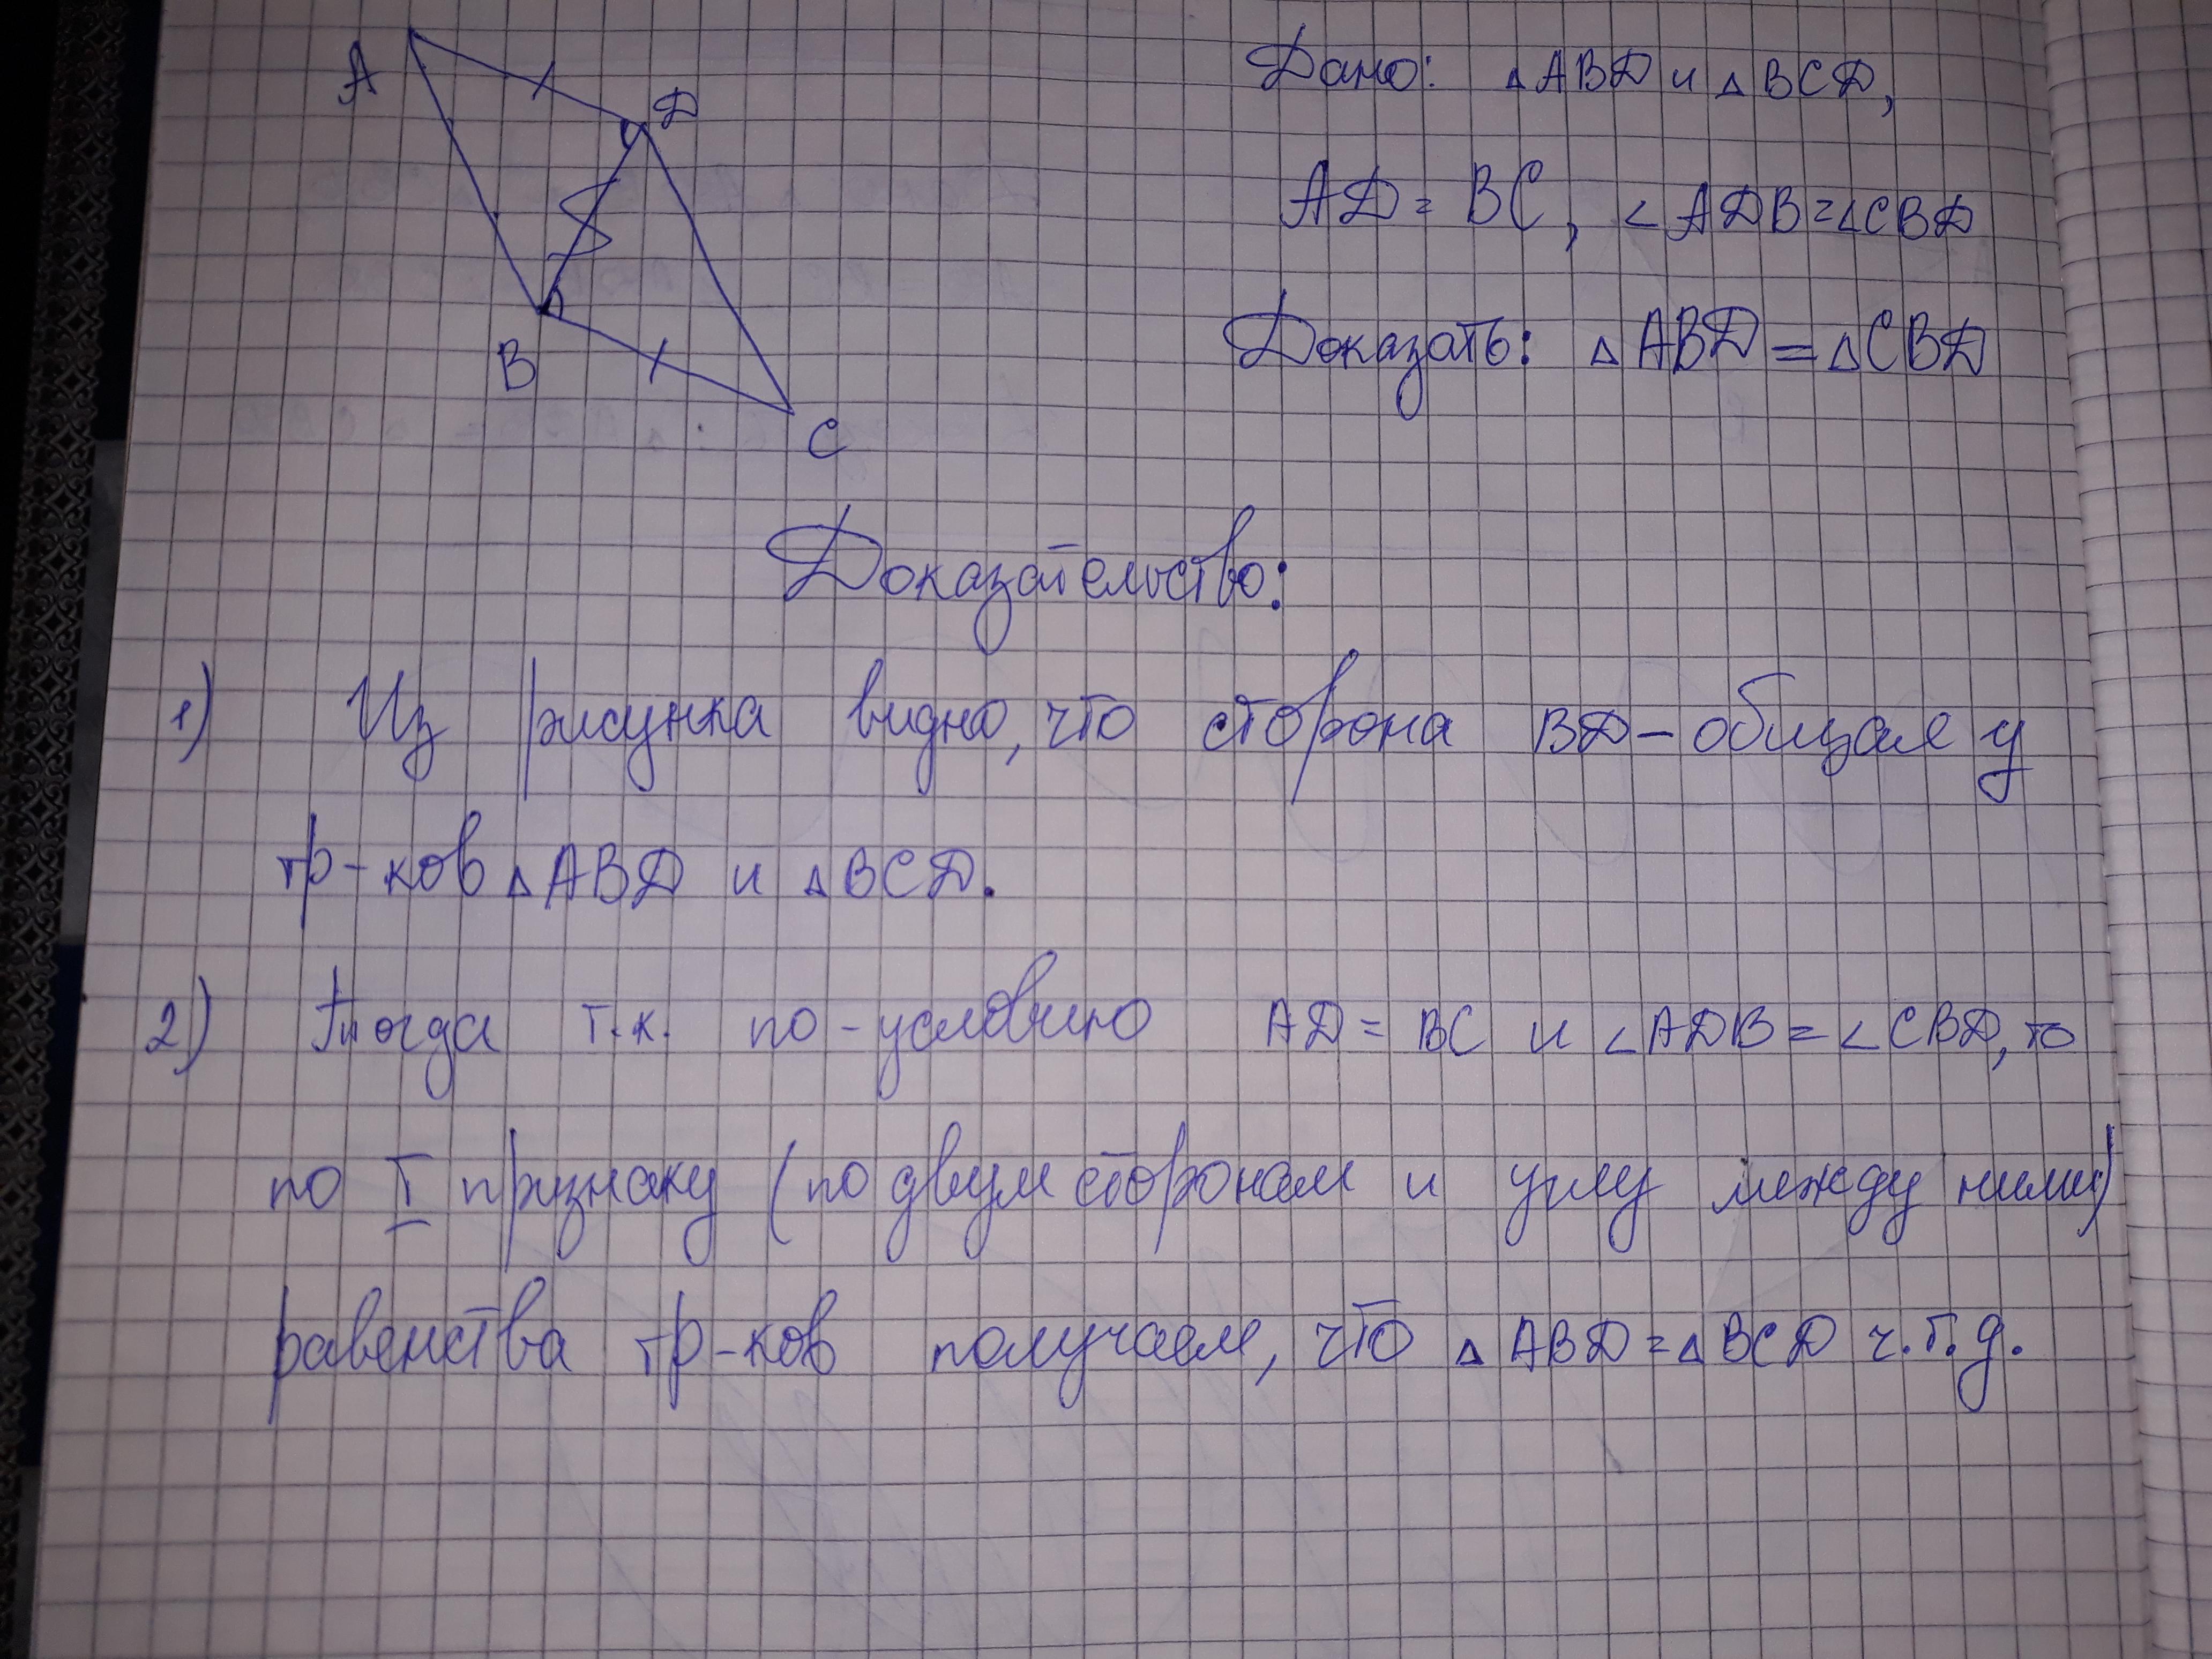 A
D
B
C
Дано: △ABD и △BCD,
AD = BC, ∠ADB=∠CBD
Доказать: △ABD = △CBD
Доказательство:
1) Из рисунка видно, что сторона BD – общая у
тр-ков △ABD и △BCD.
2) Тогда т.к. по-условию AD = BC и ∠ADB = ∠CBD, то
по I признаку (по двум сторонам и углу между ними)
равенства тр-ков получаем, что △ABD = △BCD ч.т.д.